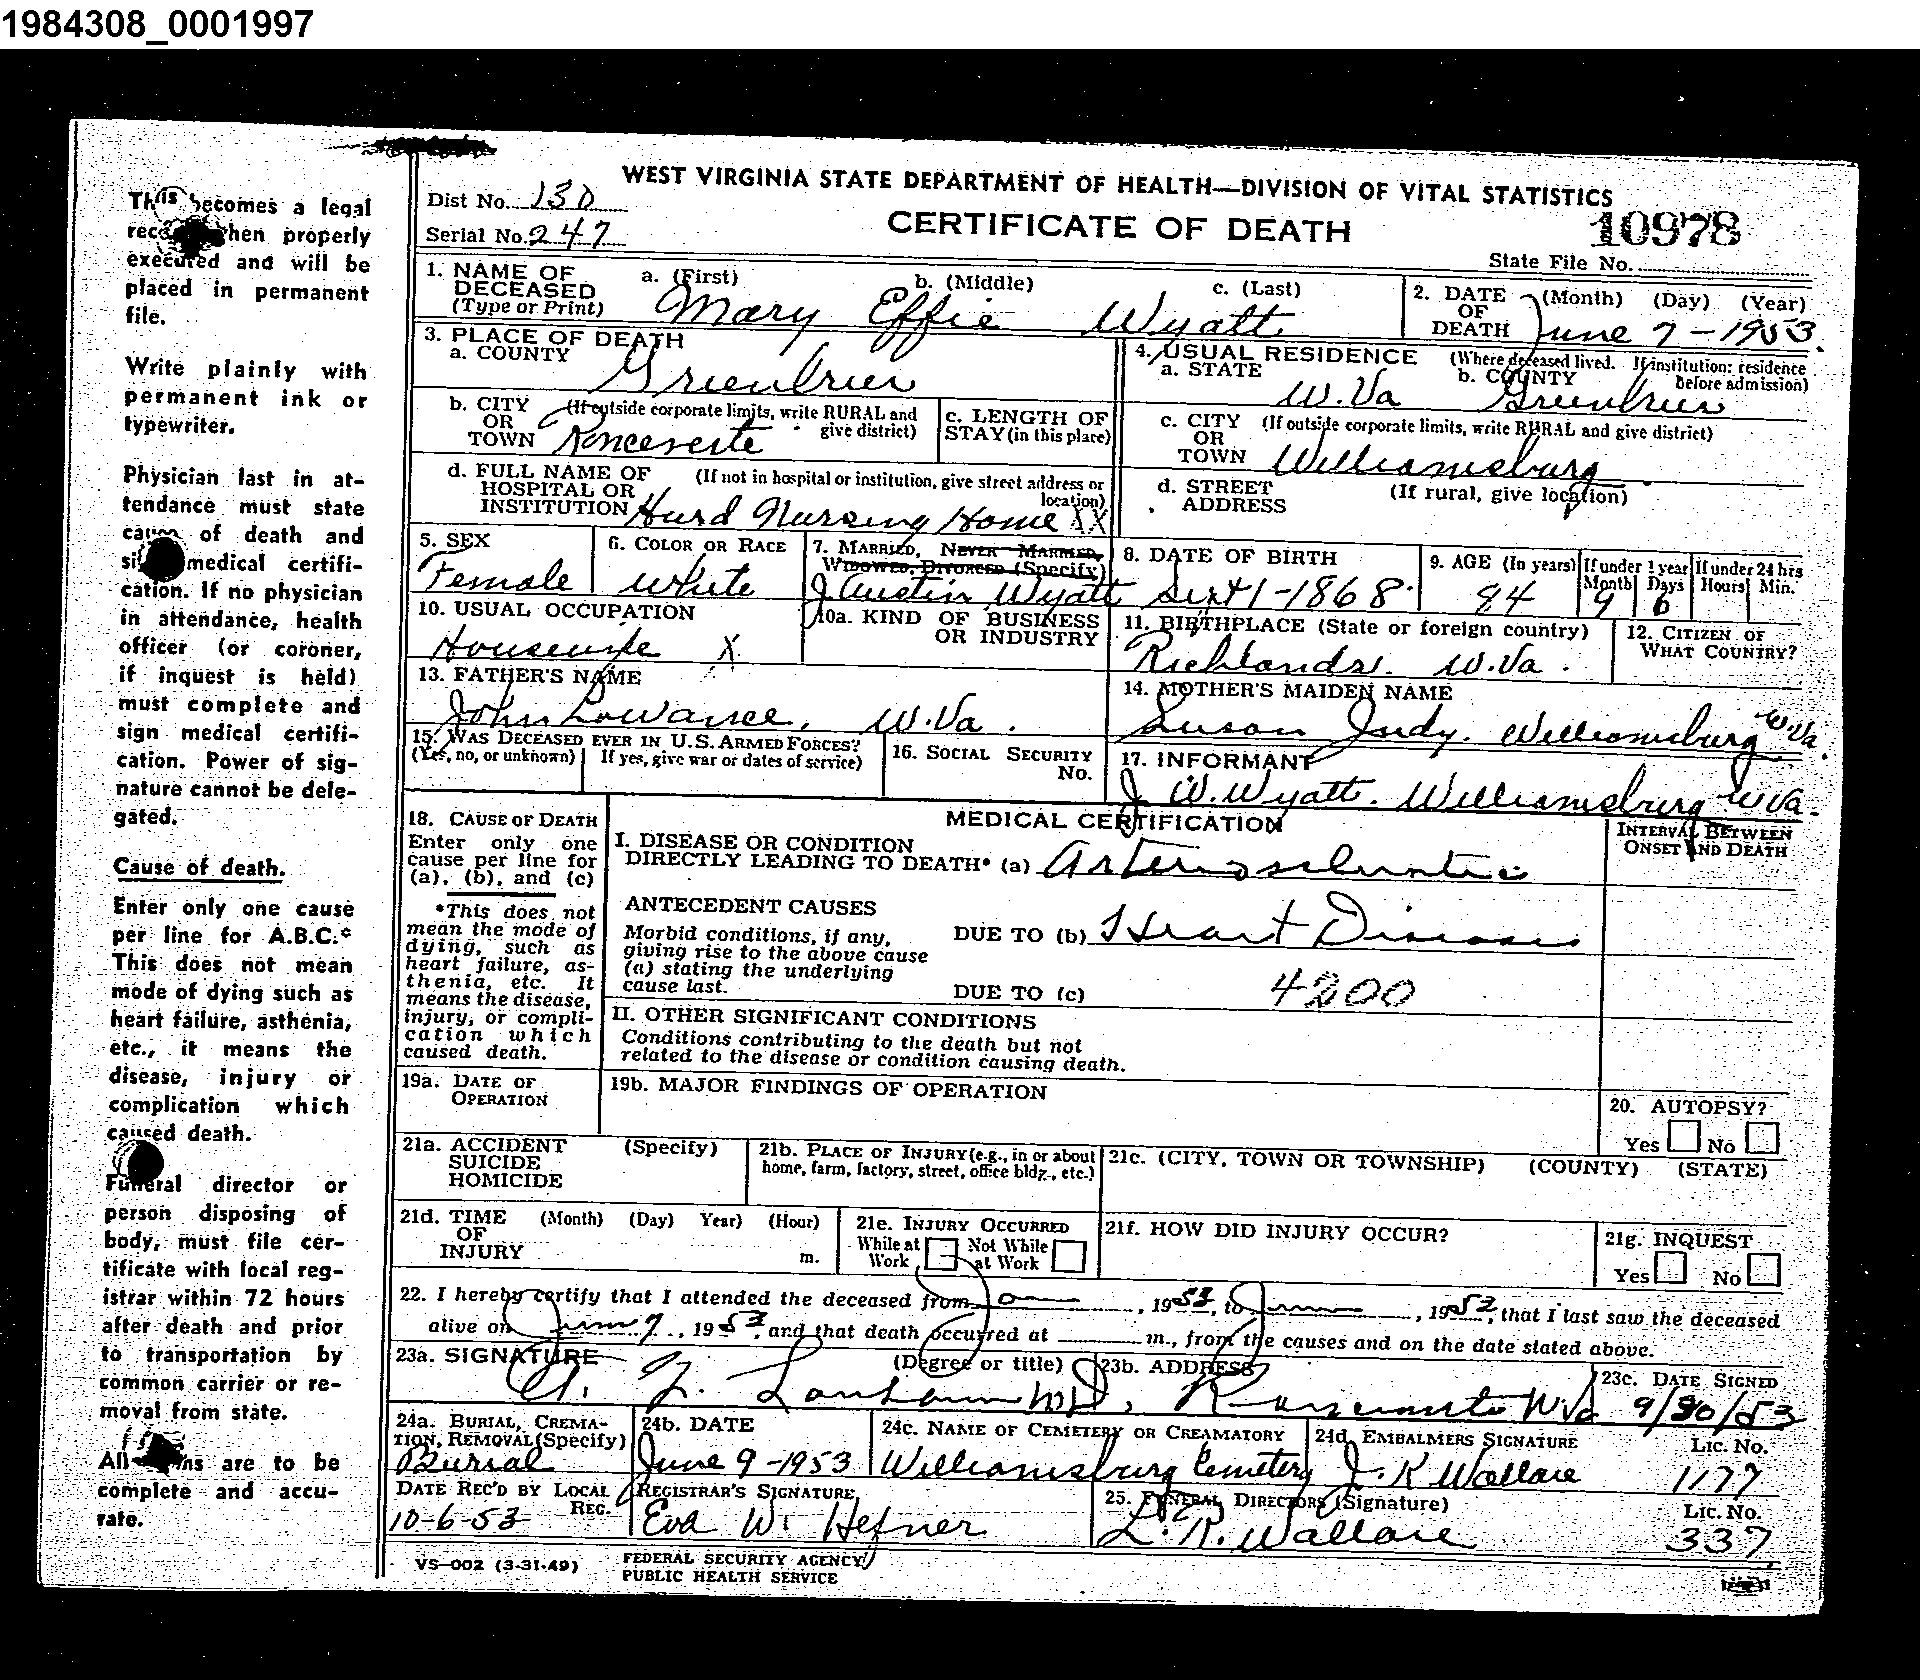 1984308_0001997
WEST VIRGINIA STATE DEPARTMENT OF HEALTH—DIVISION OF VITAL STATISTICS
Dist No. 130
CERTIFICATE OF DEATH
10978
Serial No. 247
State File No.
1. NAME OF DECEASED (Type or Print)
a. (First) Mary b. (Middle) Effie c. (Last) Wyatt
2. DATE OF DEATH (Month) (Day) (Year) June 7-1953.
3. PLACE OF DEATH
a. COUNTY Greenbrier
4. USUAL RESIDENCE (Where deceased lived. If institution: residence before admission)
a. STATE W. Va b. COUNTY Greenbrier
b. CITY OR TOWN (If outside corporate limits, write RURAL and give district) Ronceverte
c. LENGTH OF STAY (in this place)
c. CITY OR TOWN (If outside corporate limits, write RURAL and give district) Williamsburg
d. FULL NAME OF HOSPITAL OR INSTITUTION (If not in hospital or institution, give street address or location) Hurd Nursing Home XX
d. STREET ADDRESS (If rural, give location)
5. SEX Female
6. COLOR OR RACE White
7. MARRIED, NEVER MARRIED, WIDOWED, DIVORCED (Specify) J Austin Wyatt
8. DATE OF BIRTH Sept 1-1868
9. AGE (In years) 84 If under 1 year Month 9 Days 6 If under 24 hrs Hours Min.
10. USUAL OCCUPATION Housewife X
10a. KIND OF BUSINESS OR INDUSTRY
11. BIRTHPLACE (State or foreign country) Richlands. W. Va.
12. CITIZEN OF WHAT COUNTRY?
13. FATHER'S NAME John Lowance, W. Va.
14. MOTHER'S MAIDEN NAME Susan Judy. Williamsburg W Va.
15. WAS DECEASED EVER IN U.S. ARMED FORCES? (Yes, no, or unknown) If yes, give war or dates of service)
16. SOCIAL SECURITY No.
17. INFORMANT J. W. Wyatt. Williamsburg W Va.
18. CAUSE OF DEATH
Enter only one cause per line for (a), (b), and (c)
*This does not mean the mode of dying, such as heart failure, asthenia, etc. It means the disease, injury, or complication which caused death.
MEDICAL CERTIFICATION
INTERVAL BETWEEN ONSET AND DEATH
I. DISEASE OR CONDITION DIRECTLY LEADING TO DEATH* (a) Arteriosclerotic
ANTECEDENT CAUSES
Morbid conditions, if any, giving rise to the above cause (a) stating the underlying cause last.
DUE TO (b) Heart Disease
DUE TO (c) 4200
II. OTHER SIGNIFICANT CONDITIONS
Conditions contributing to the death but not related to the disease or condition causing death.
19a. DATE OF OPERATION
19b. MAJOR FINDINGS OF OPERATION
20. AUTOPSY?
Yes No
21a. ACCIDENT SUICIDE HOMICIDE (Specify)
21b. PLACE OF INJURY (e.g., in or about home, farm, factory, street, office bldg., etc.)
21c. (CITY, TOWN OR TOWNSHIP) (COUNTY) (STATE)
21d. TIME OF INJURY (Month) (Day) Year) (Hour) m.
21e. INJURY OCCURRED While at Work Not While at Work
21f. HOW DID INJURY OCCUR?
21g. INQUEST Yes No
22. I hereby certify that I attended the deceased from Jan, 1953, to June, 1953, that I last saw the deceased
alive on June 7, 1953, and that death occurred at m., from the causes and on the date stated above.
23a. SIGNATURE (Degree or title) Lanham MD,
23b. ADDRESS Ronceverte W Va
23c. DATE SIGNED 9/30/53
24a. BURIAL, CREMATION, REMOVAL (Specify) Burial
24b. DATE June 9-1953
24c. NAME OF CEMETERY OR CREAMATORY Williamsburg Cemetery
24d. EMBALMERS SIGNATURE J. K Wallace Lic. No. 1177
DATE REC'D BY LOCAL REG. 10-6-53
REGISTRAR'S SIGNATURE Eva W. Hefner
25. FUNERAL DIRECTORS (Signature) L. R. Wallace Lic. No. 337
VS-002 (3-31-49)
FEDERAL SECURITY AGENCY
PUBLIC HEALTH SERVICE
This becomes a legal
record when properly
executed and will be
placed in permanent
file.
Write plainly with
permanent ink or
typewriter.
Physician last in at-
tendance must state
cause of death and
sign medical certifi-
cation. If no physician
in attendance, health
officer (or coroner,
if inquest is held)
must complete and
sign medical certifi-
cation. Power of sig-
nature cannot be dele-
gated.
Cause of death.
Enter only one cause
per line for A.B.C.*
This does not mean
mode of dying such as
heart failure, asthenia,
etc., it means the
disease, injury or
complication which
caused death.
Funeral director or
person disposing of
body, must file cer-
tificate with local reg-
istrar within 72 hours
after death and prior
to transportation by
common carrier or re-
moval from state.
All items are to be
complete and accu-
rate.